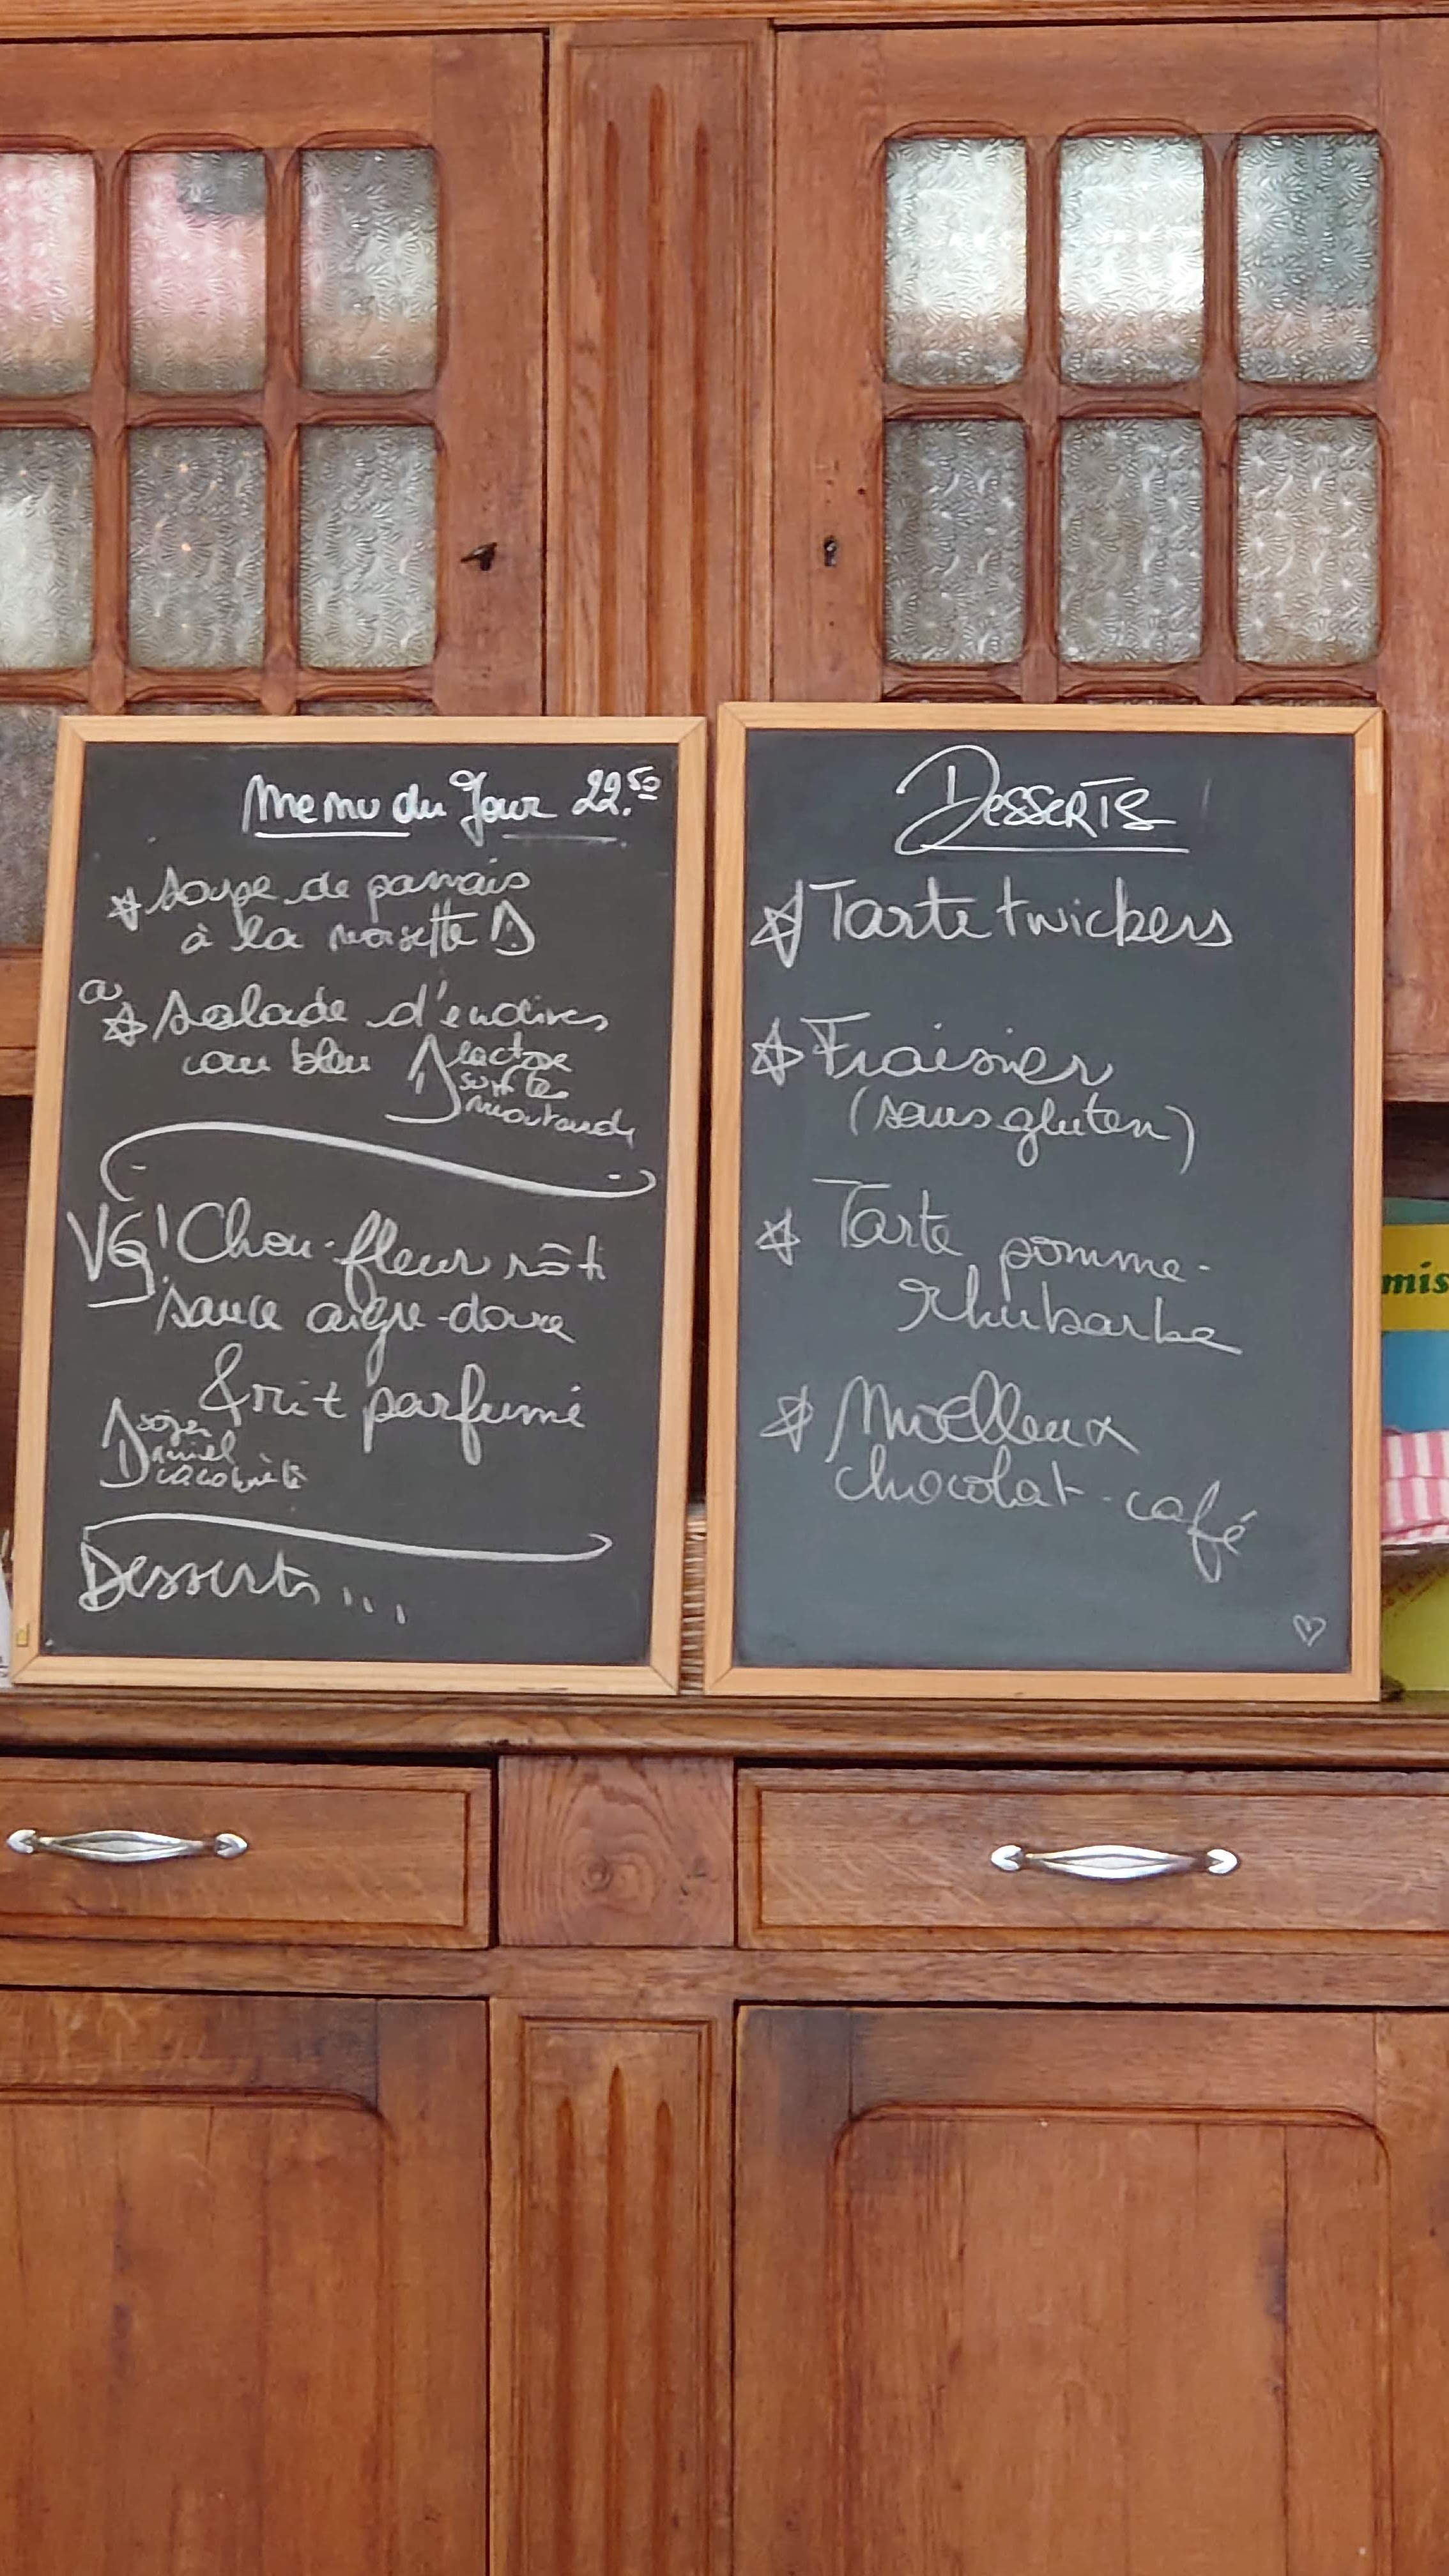 Menu du Jour 22.50
☆ Soupe de panais
à la noisette
ou
☆ Salade d'endives
au bleu
lactose
sulfites
moutarde
VG! Chou-fleur rôti
sauce aigre-douce
& riz parfumé
soja
cacahuète
Desserts...
Desserts
☆ Tarte twickers
☆ Fraisier
(sans gluten)
☆ Tarte pomme-
Rhubarbe
☆ Moelleux
chocolat-café
mis